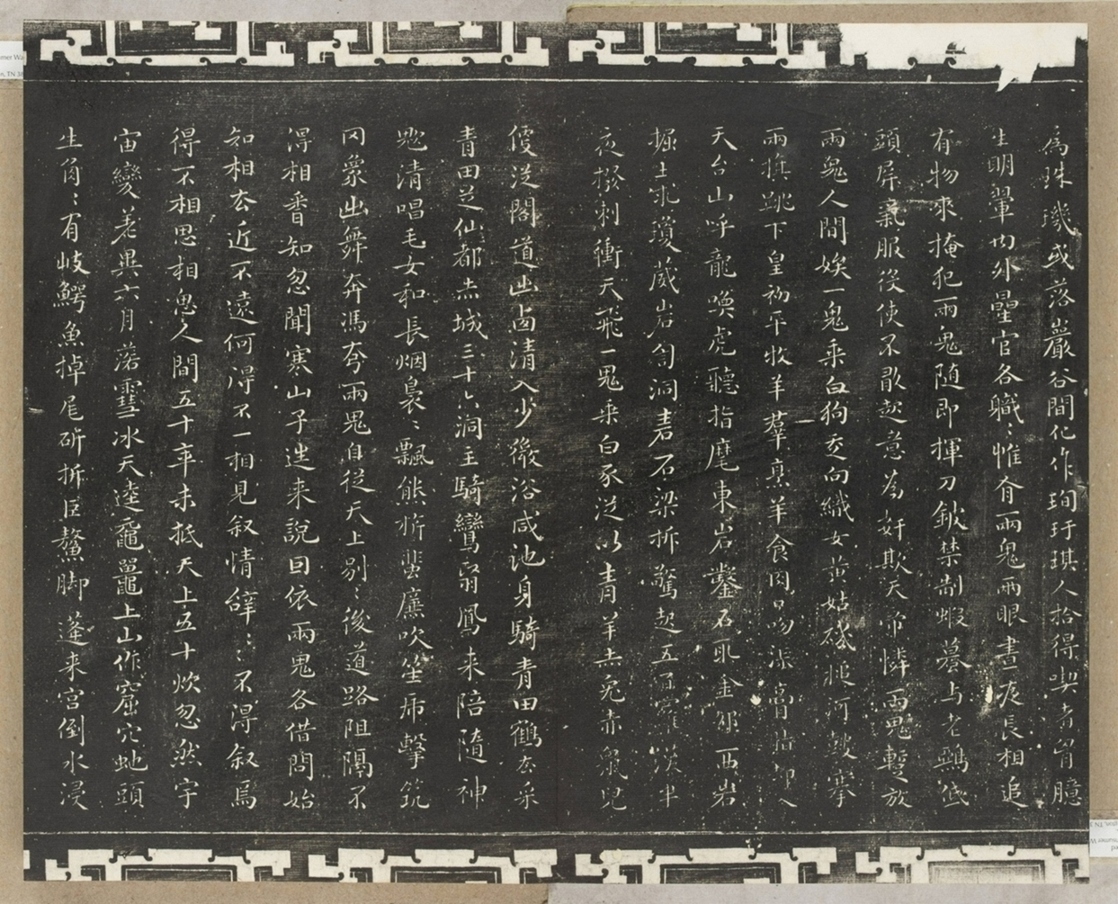 為珠璣或落巖谷間化作珣玗琪人拾得喫者胷臆
生明翬内外星官各職〻惟有兩鬼兩眼晝夜長相追
有物來掩犯兩鬼随即揮刀鈹禁制蝦蟇与老鵶低
頭屏氣服役使不敢起意為奸欺天帝憐兩鬼暫放
兩鬼人間娭一鬼乘白狗走向織女黄姑磯槌河鼓搴
兩旗跳下皇初平牧羊羣烹羊食肉口吻流膏脂却入
天台山呼龍喚虎聽指麾東岩鑿石取金卵西岩
掘土求瓊葳岩訇洞砉石梁折驚起五百羅漢半
夜撥刺衝天飛一鬼乘白豕從以青羊青兔赤鼠兒
便從閣道出西清入少微浴咸池身騎青田鶴去采
青田芝仙都赤城三十六洞主騎鸞翳鳳来陪随神
魖清唱毛女和長烟裊〻飄熊旂蜚廉吹笙虎擊筑
罔象出舞奔馮夷兩鬼自從天上别〻後道路阻隔不
得相聞知忽聞寒山子往来説因依兩鬼各借問始
知相去近不遠何得不一相見叙情辭〻〻不得叙焉
得不相思相思人間五十年未抵天上五十炊忽然宇
宙變差異六月落雪冰天逵黿鼉上山作窟穴虵頭
生角〻有岐鰐魚掉尾斫折巨鰲脚蓬来宫倒水浸